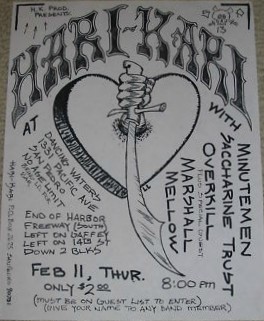 H.K. PROD.
PRESENTS:
13
HARI-KARI
AT
DANCING WATERS
1331 PACIFIC AVE
SAN PEDRO
NO AGE LIMIT
END OF HARBOR
FREEWAY (SOUTH)
LEFT ON GAFFEY
LEFT ON 14th ST
DOWN 2 BLKS
WITH
MINUTEMEN
SACCHARINE TRUST
OVERKILL
PLUS SPECIAL GUEST
MARSHALL
MELLOW
FEB 11, THUR.
ONLY $2.00
8:00 PM
(MUST BE ON GUEST LIST TO ENTER)
(GIVE YOUR NAME TO ANY BAND MEMBER)
HARI KARI P.O. BOX